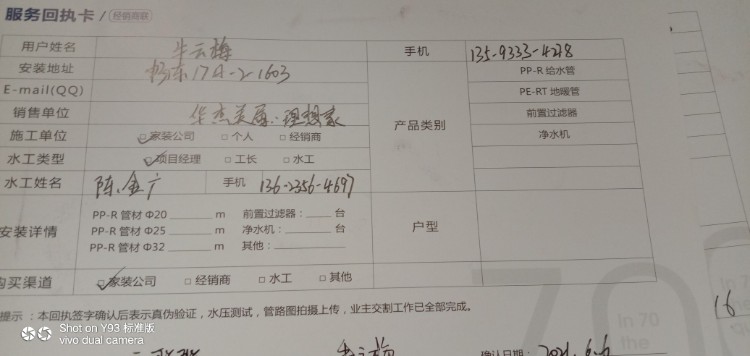 服务回执卡 / 经销商联
用户姓名 牛云梅 手机 135-9333-4278
安装地址 杨东17A-2-1603 PP-R 给水管
E-mail(QQ) PE-RT 地暖管
销售单位 华杰美居·理想家 产品类别 前置过滤器
施工单位 ☑家装公司 □个人 □经销商 净水机
水工类型 ☑项目经理 □工长 □水工
水工姓名 陈金广 手机 136-2356-4697
安装详情 PP-R 管材 Φ20 m 前置过滤器: 台 户型
PP-R 管材 Φ25 m 净水机: 台
PP-R 管材 Φ32 m 其他:
购买渠道 ☑家装公司 □经销商 □水工 □其他
提示：本回执签字确认后表示真伪验证，水压测试，管路图拍摄上传，业主交割工作已全部完成。
确认日期： 2021.6.6
16
In 70
the
Shot on Y93 标准版
vivo dual camera